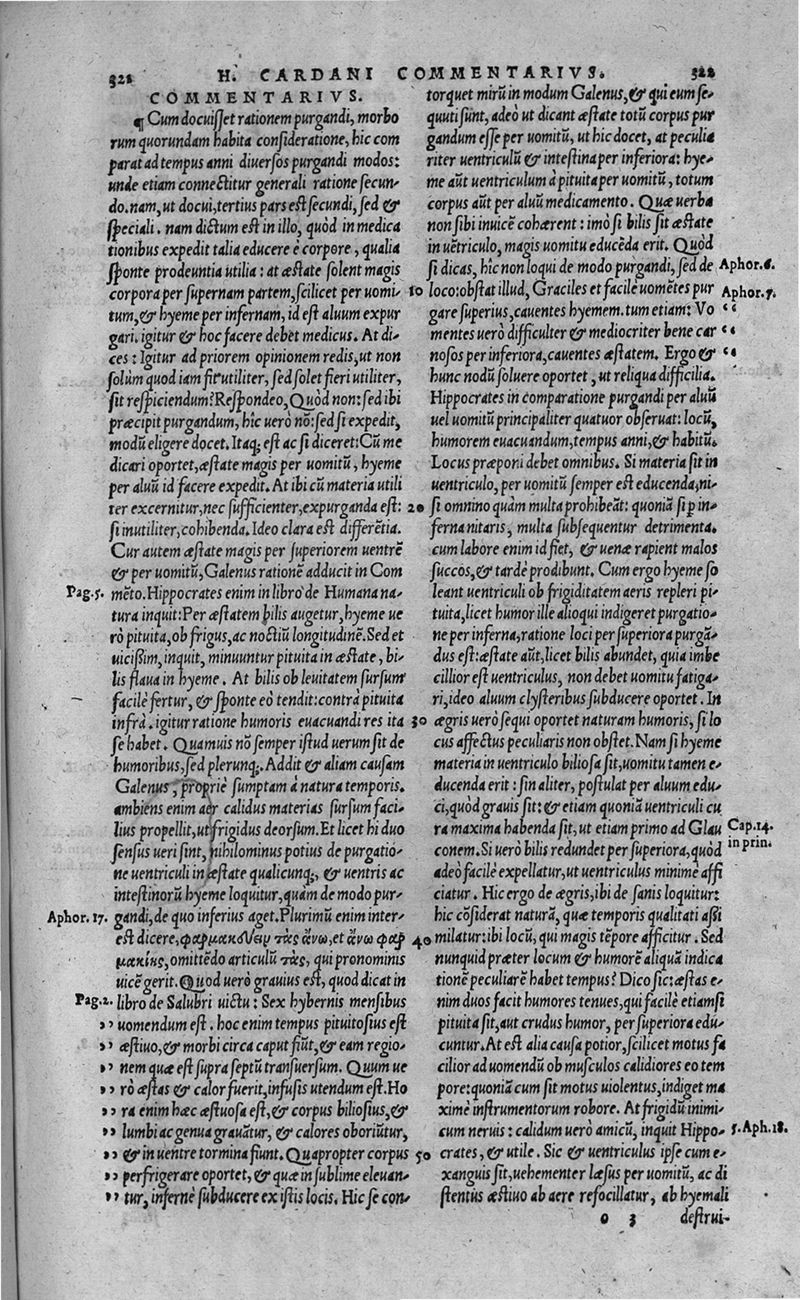 321
H. CARDANI COMMENTARIVS.
322
COMMENTARIVS.
¶ Cum docuisset rationem purgandi, morbo
rum quorundam habita consideratione, hic com
parat ad tempus anni diuersos purgandi modos:
unde etiam connectitur generali ratione secun-
do. nam, ut docui, tertius pars est secundi, sed &
speciali. nam dictum est in illo, quòd in medica
tionibus expedit talia educere è corpore, qualia
sponte prodeuntia utilia: at æstate solent magis
corpora per supernam partem, scilicet per uomi-
tum, & hyeme per infernam, id est aluum expur
gari. igitur & hoc facere debet medicus. At di-
ces: Igitur ad priorem opinionem redis, ut non
solùm quod iam fit utiliter, sed solet fieri utiliter,
sit respiciendum? Respondeo, Quòd non: sed ibi
præcipit purgandum, hîc uerò nō: sed si expedit,
modū eligere docet. Itaq; est ac si diceret: Cū me
dicari oportet, æstate magis per uomitū, hyeme
per aluū id facere expedit. At ibi cū materia utili
ter excernitur, nec sufficienter, expurganda est:
si inutiliter, cohibenda. Ideo clara est differētia.
Cur autem æstate magis per superiorem uentrē
& per uomitū, Galenus rationē adducit in Com
Pag.5. mēto. Hippocrates enim in libro de Humana na-
tura inquit: Per æstatem bilis augetur, hyeme ue
rò pituita, ob frigus, ac noctiū longitudinē. Sed et
uicissim, inquit, minuuntur pituita in æstate, bi-
lis flaua in hyeme. At bilis ob leuitatem sursum
facilè fertur, & sponte eò tendit: contrà pituita
infrà. igitur ratione humoris euacuandi res ita
se habet. Quamuis nō semper istud uerum sit de
humoribus, sed plerunq;. Addit & aliam causam
Galenus, propriè sumptam à natura temporis.
ambiens enim aer calidus materias sursum faci-
lius propellit, ut frigidus deorsum. Et licet hi duo
sensus ueri sint, nihilominus potius de purgatio-
ne uentriculi in æstate qualicunq;, & uentris ac
intestinorū hyeme loquitur, quàm de modo pur-
Aphor. 17. gandi, de quo inferius aget. Plurimū enim inter-
est dicere, φαρμακδύειν τὰς ἄνω, et ἄνω φαρ
μακίης, omittēdo articulū τὰς, qui pronominis
uicē gerit. Quod uerò grauius est, quod dicat in
Pag.2. libro de Salubri uictu: Sex hybernis mensibus
,, uomendum est. hoc enim tempus pituitosius est
,, æstiuo, & morbi circa caput fiūt, & eam regio-
,, nem quæ est supra septū transuersum. Quum ue
,, rò æstas & calor fuerit, infusis utendum est. Ho
,, ra enim hæc æstuosa est, & corpus biliosius, &
,, lumbi ac genua grauātur, & calores oboriūtur,
,, & in uentre tormina fiunt. Quapropter corpus
,, perfrigerare oportet, & quæ in sublime eleuan-
,, tur, infernè subducere ex istis locis. Hic se con-
torquet mirū in modum Galenus, & qui eum se-
quuti sunt, adeò ut dicant æstate totū corpus pur
gandum esse per uomitū, ut hic docet, at peculia
riter uentriculū & intestina per inferiora: hye-
me aūt uentriculum à pituita per uomitū, totum
corpus aūt per aluū medicamento. Quæ uerba
non sibi inuicē cohærent: imò si bilis sit æstate
in uētriculo, magis uomitu educēda erit. Quòd
si dicas, hic non loqui de modo purgandi, sed de Aphor.6.
10 loco: obstat illud, Graciles et facilè uomētes pur Aphor.7.
gare superius, cauentes hyemem. tum etiam: Vo “
mentes uerò difficulter & mediocriter bene car “
nosos per inferiora, cauentes æstatem. Ergo & “
hunc nodū soluere oportet, ut reliqua difficilia.
Hippocrates in comparatione purgandi per aluū
uel uomitū principaliter quatuor obseruat: locū,
humorem euacuandum, tempus anni, & habitū.
Locus præponi debet omnibus. Si materia sit in
uentriculo, per uomitū semper est educenda, ni-
20 si omnino quàm multa prohibeāt: quoniā si p in-
ferna nitaris, multa subsequentur detrimenta.
cum labore enim id fiet, & uenæ rapient malos
succos, & tardè prodibunt. Cum ergo hyeme so
leant uentriculi ob frigiditatem aeris repleri pi-
tuita, licet humor ille alioqui indigeret purgatio-
ne per inferna, ratione loci per superiora purgā-
dus est: æstate aūt, licet bilis abundet, quia imbe
cillior est uentriculus, non debet uomitu fatiga-
ri, ideo aluum clysteribus subducere oportet. In
30 ægris uerò sequi oportet naturam humoris, si lo
cus affectus peculiaris non obstet. Nam si hyeme
materia in uentriculo biliosa sit, uomitu tamen e-
ducenda erit: sin aliter, postulat per aluum edu-
ci, quòd grauis sit: & etiam quoniā uentriculi cu
ra maxima habenda sit, ut etiam primo ad Glau Cap.14.
conem. Si uerò bilis redundet per superiora, quòd in prin.
adeò facilè expellatur, ut uentriculus minimè affi
ciatur. Hic ergo de ægris, ibi de sanis loquitur:
hic cōsiderat naturā, quæ temporis qualitati assi
40 milatur: ibi locū, qui magis tēpore afficitur. Sed
nunquid præter locum & humorē aliquā indica
tionē peculiarē habet tempus? Dico sic: æstas e-
nim duos facit humores tenues, qui facilè etiamsi
pituita sit, aut crudus humor, per superiora edu-
cuntur. At est alia causa potior, scilicet motus fa
cilior ad uomendū ob musculos calidiores eo tem
pore: quoniā cum sit motus uiolentus, indiget ma
ximè instrumentorum robore. At frigidū inimi-
cum neruis: calidum uerò amicū, inquit Hippo- 5.Aph.18.
50 crates, & utile. Sic & uentriculus ipse cum e-
xanguis sit, uehementer læsus per uomitū, ac di
stentus æstiuo ab aere refocillatur, ab hyemali
o 3 destrui-